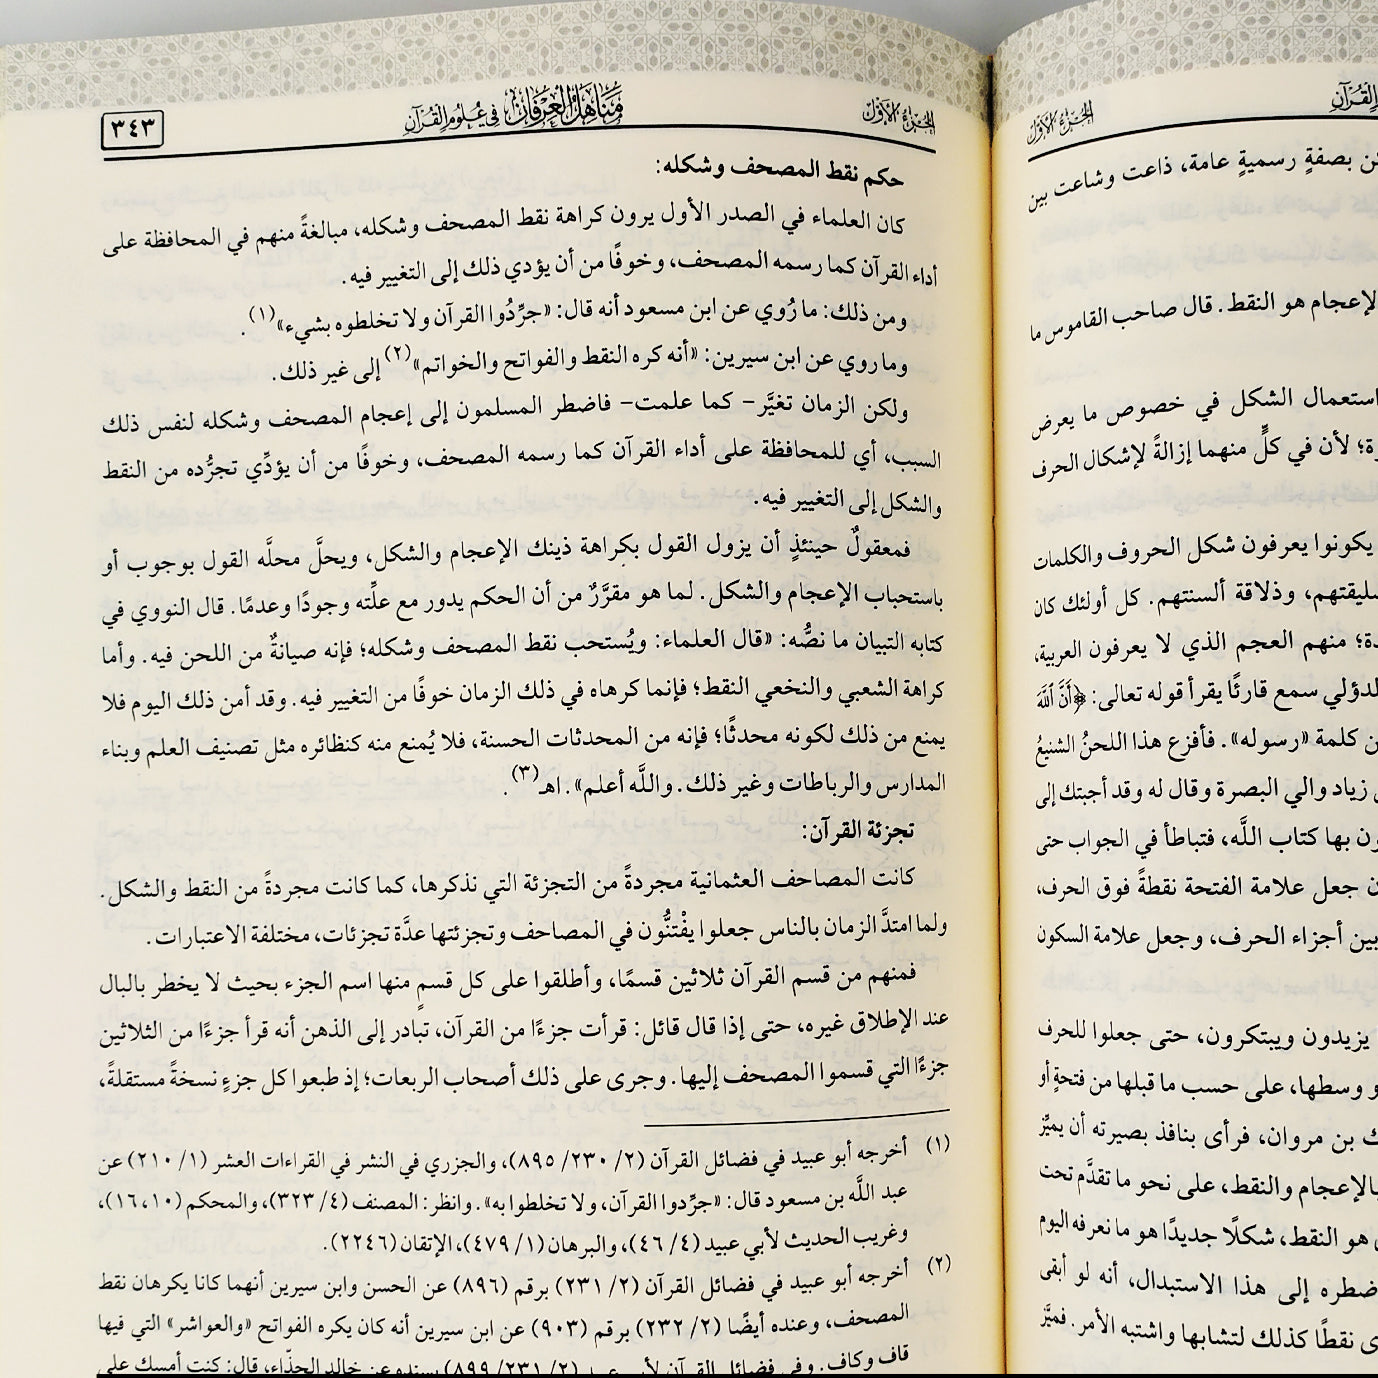 الجزء الأول
القرآن
ـن بصفةٍ رسميةٍ عامة، ذاعت وشاعت بين
الإعجام هو النقط. قال صاحب القاموس ما
استعمال الشكل في خصوص ما يعرض
ـرة؛ لأن في كلٍّ منهما إزالةً لإشكال الحرف
يكونوا يعرفون شكل الحروف والكلمات
سليقتهم، وذلاقة ألسنتهم. كل أولئك كان
ـدة؛ منهم العجم الذي لا يعرفون العربية،
الدؤلي سمع قارئًا يقرأ قوله تعالى: ﴿أَنَّ اللَّهَ
ـن كلمة «رسوله». فأفزع هذا اللحنُ الشنيعُ
زياد والي البصرة وقال له وقد أجبتك إلى
ـون بها كتاب اللَّه، فتباطأ في الجواب حتى
ن جعل علامة الفتحة نقطةً فوق الحرف،
بين أجزاء الحرف، وجعل علامة السكون
يزيدون ويبتكرون، حتى جعلوا للحرف
و وسطها، على حسب ما قبلها من فتحةٍ أو
ك بن مروان، فرأى بنافذ بصيرته أن يميِّز
بالإعجام والنقط، على نحو ما تقدَّم تحت
هو النقط، شكلًا جديدًا هو ما نعرفه اليوم
ضطره إلى هذا الاستبدال، أنه لو أبقى
ى نقطًا كذلك لتشابها واشتبه الأمر. فميَّز
الجزء الأول
مناهل العرفان في علوم القرآن
٣٤٣
حكم نقط المصحف وشكله:
كان العلماء في الصدر الأول يرون كراهة نقط المصحف وشكله، مبالغةً منهم في المحافظة على
أداء القرآن كما رسمه المصحف، وخوفًا من أن يؤدي ذلك إلى التغيير فيه.
ومن ذلك: ما رُوي عن ابن مسعود أنه قال: «جرِّدُوا القرآن ولا تخلطوه بشيء»(١).
وما روي عن ابن سيرين: «أنه كره النقط والفواتح والخواتم»(٢) إلى غير ذلك.
ولكن الزمان تغيَّر – كما علمت – فاضطر المسلمون إلى إعجام المصحف وشكله لنفس ذلك
السبب، أي للمحافظة على أداء القرآن كما رسمه المصحف، وخوفًا من أن يؤدِّي تجرُّده من النقط
والشكل إلى التغيير فيه.
فمعقولٌ حينئذٍ أن يزول القول بكراهة ذينك الإعجام والشكل، ويحلَّ محلَّه القول بوجوب أو
باستحباب الإعجام والشكل. لما هو مقرَّرٌ من أن الحكم يدور مع علِّته وجودًا وعدمًا. قال النووي في
كتابه التبيان ما نصُّه: «قال العلماء: ويُستحب نقط المصحف وشكله؛ فإنه صيانةٌ من اللحن فيه. وأما
كراهة الشعبي والنخعي النقط؛ فإنما كرهاه في ذلك الزمان خوفًا من التغيير فيه. وقد أمن ذلك اليوم فلا
يمنع من ذلك لكونه محدثًا؛ فإنه من المحدثات الحسنة، فلا يُمنع منه كنظائره مثل تصنيف العلم وبناء
المدارس والرباطات وغير ذلك. واللَّه أعلم». اهـ(٣).
تجزئة القرآن:
كانت المصاحف العثمانية مجردةً من التجزئة التي نذكرها، كما كانت مجردةً من النقط والشكل.
ولما امتدَّ الزمان بالناس جعلوا يفْتنُّون في المصاحف وتجزئتها عدَّة تجزئات، مختلفة الاعتبارات.
فمنهم من قسم القرآن ثلاثين قسمًا، وأطلقوا على كل قسمٍ منها اسم الجزء بحيث لا يخطر بالبال
عند الإطلاق غيره، حتى إذا قال قائل: قرأت جزءًا من القرآن، تبادر إلى الذهن أنه قرأ جزءًا من الثلاثين
جزءًا التي قسموا المصحف إليها. وجرى على ذلك أصحاب الربعات؛ إذ طبعوا كل جزءٍ نسخةً مستقلةً،
(١) أخرجه أبو عبيد في فضائل القرآن (٢/ ٢٣٠/ ٨٩٥)، والجزري في النشر في القراءات العشر (١/ ٢١٠) عن
عبد اللَّه بن مسعود قال: «جرِّدوا القرآن، ولا تخلطوا به». وانظر: المصنف (٤/ ٣٢٣)، والمحكم (١٠، ١٦)،
وغريب الحديث لأبي عبيد (٤/ ٤٦)، والبرهان (١/ ٤٧٩)، الإتقان (٢٢٤٦).
(٢) أخرجه أبو عبيد في فضائل القرآن (٢/ ٢٣١) برقم (٨٩٦) عن الحسن وابن سيرين أنهما كانا يكرهان نقط
المصحف، وعنده أيضًا (٢/ ٢٣٢) برقم (٩٠٣) عن ابن سيرين أنه كان يكره الفواتح «والعواشر» التي فيها
قاف وكاف. وفي فضائل القرآن لأبي عبيد (٢/ ٢٣١/ ٨٩٩) بسنده عن خالد الحذّاء، قال: كنت أمسك على